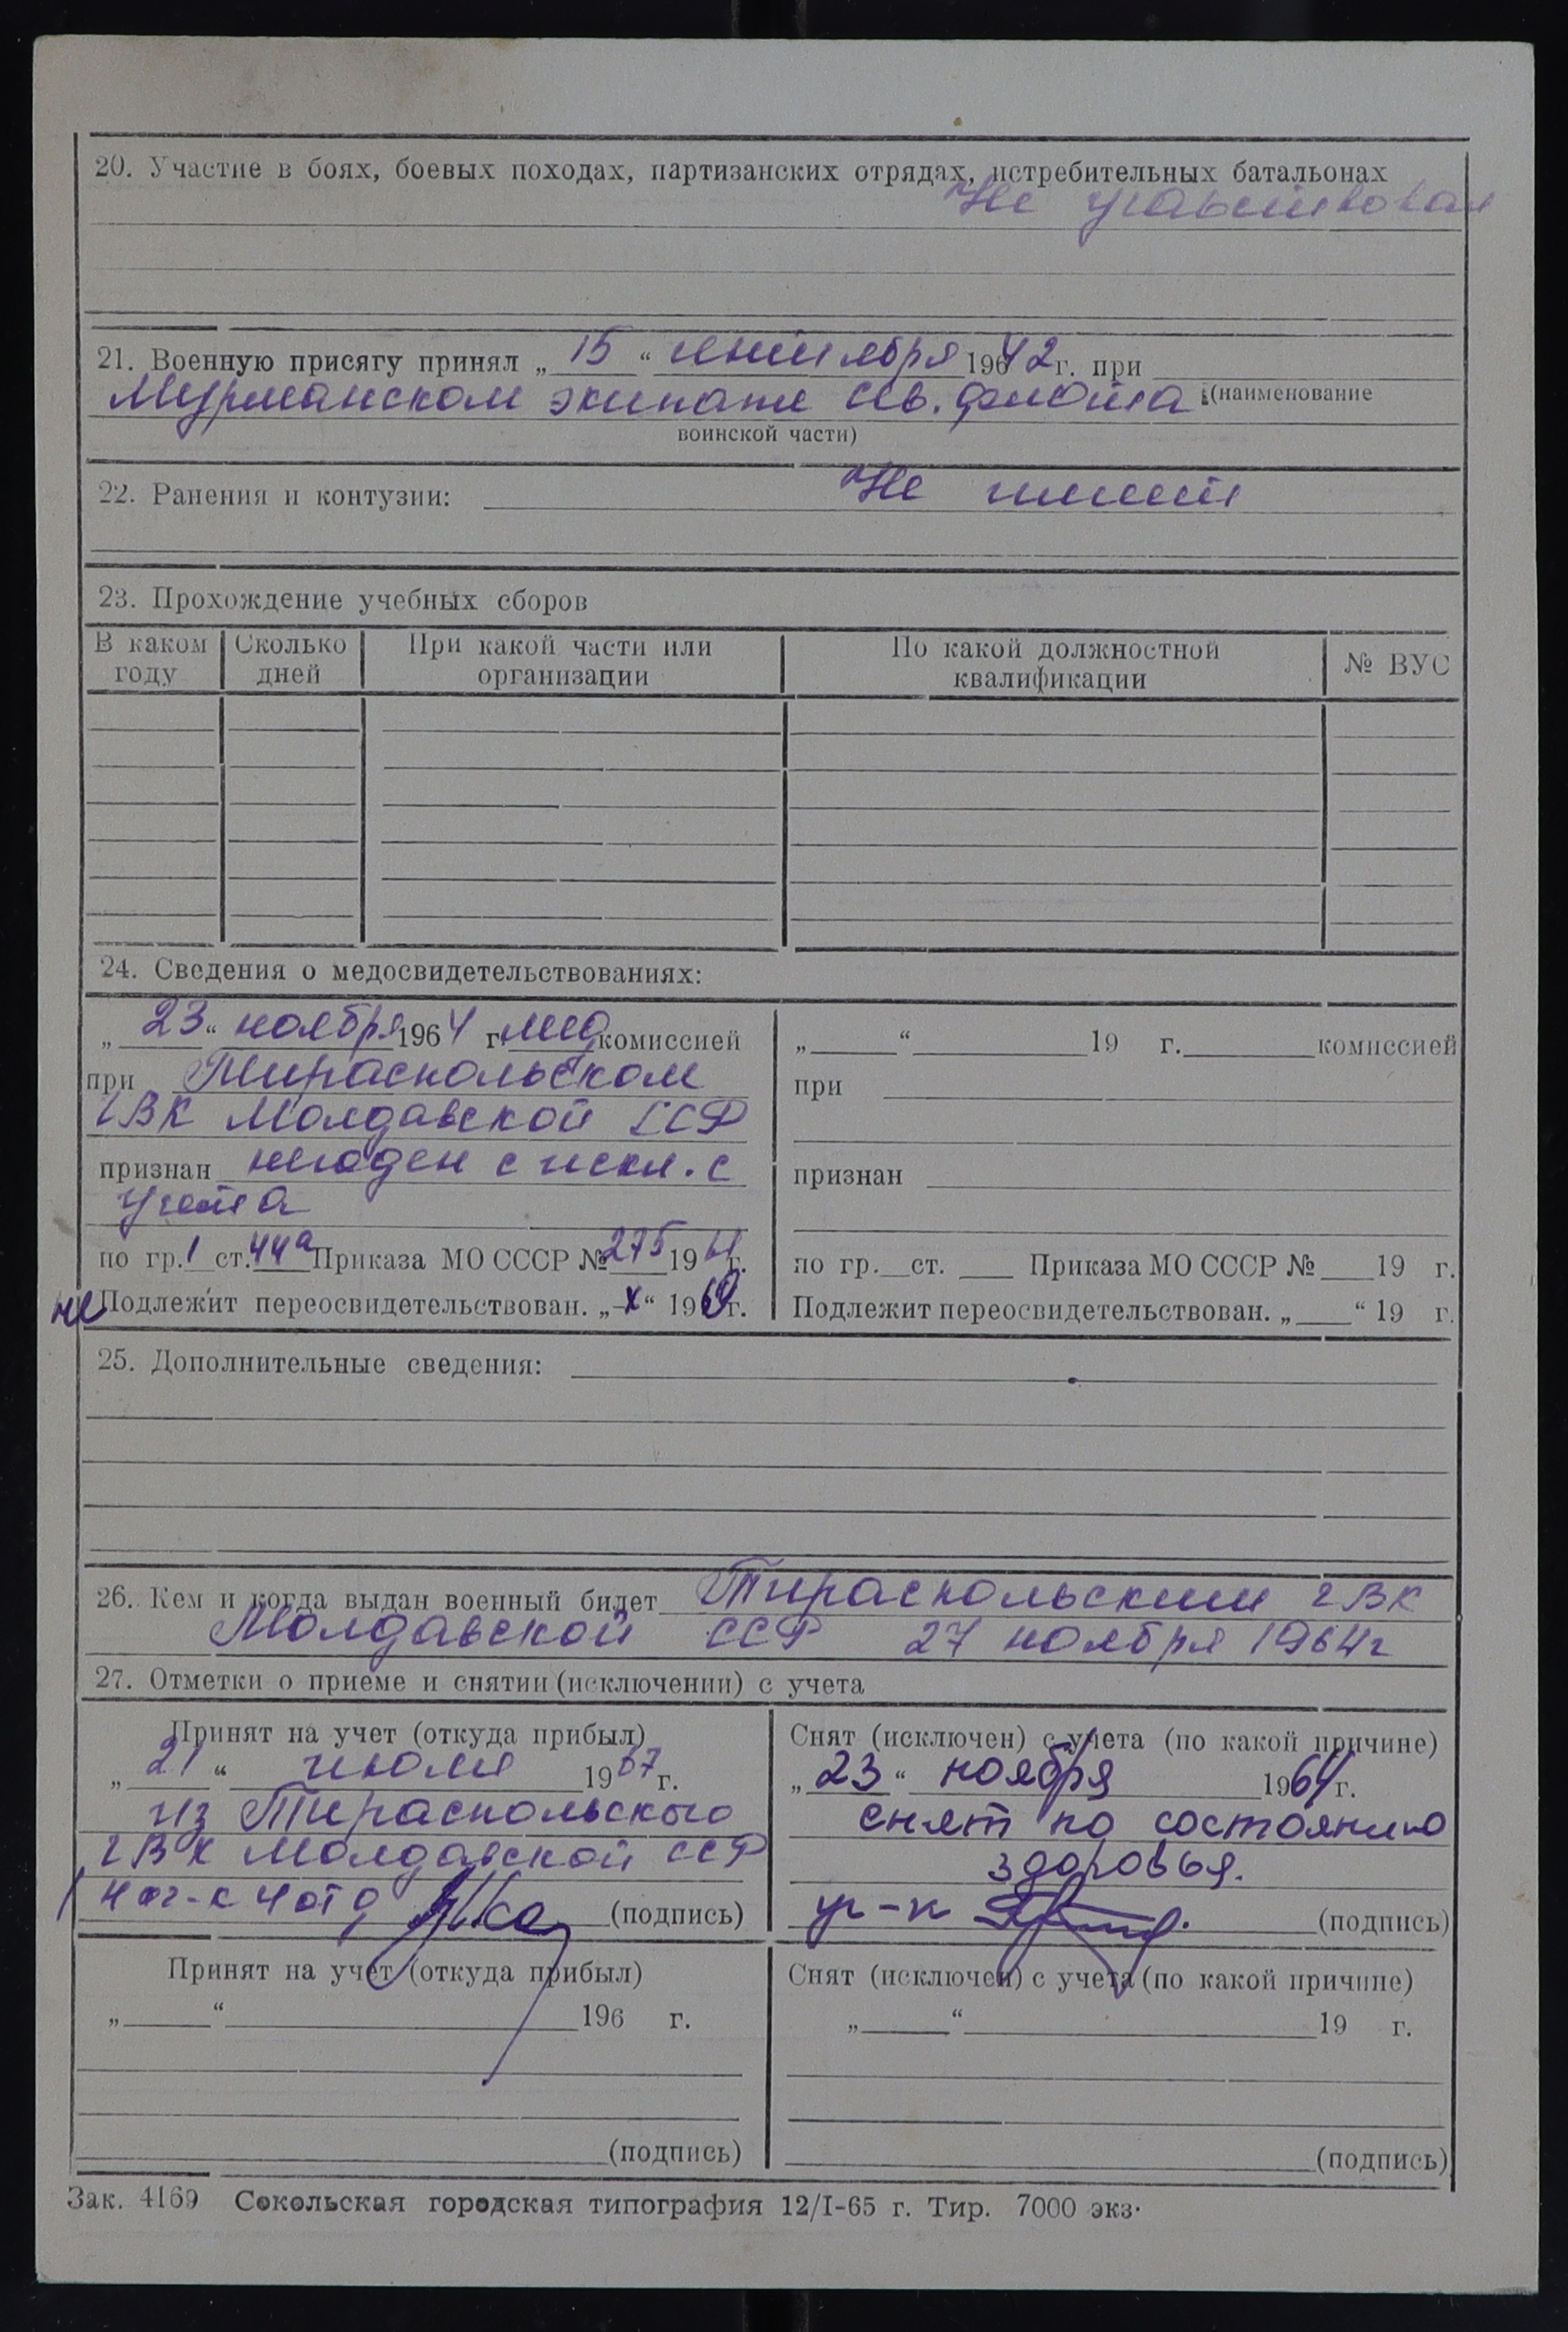 20. Участие в боях, боевых походах, партизанских отрядах, истребительных батальонах
Не участвовал
21. Военную присягу принял „15“ сентября 1942 г. при
Мурманском экипаже Сев. флота (наименование
воинской части)
22. Ранения и контузии: Не имеет
23. Прохождение учебных сборов
В каком году Сколько дней При какой части или организации По какой должностной квалификации № ВУС
24. Сведения о медосвидетельствованиях:
„23“ ноября 1964 г. мед комиссией
при Тираспольском
ГВК Молдавской ССР
признан негоден с искл. с
учета
по гр. 1 ст. 44а Приказа МО СССР № 275 19 г.
не Подлежит переосвидетельствован. „х“ 196 г.
„ “ 19 г. комиссией
при
признан
по гр. ст. Приказа МО СССР № 19 г.
Подлежит переосвидетельствован. „ “ 19 г.
25. Дополнительные сведения:
26. Кем и когда выдан военный билет Тираспольским ГВК
Молдавской ССР 27 ноября 1964 г
27. Отметки о приеме и снятии (исключении) с учета
Принят на учет (откуда прибыл)
„21“ июля 1967 г.
из Тираспольского
ГВК Молдавской ССР
Нач-к 4 отд (подпись)
Снят (исключен) с учета (по какой причине)
„23“ ноября 1964 г.
снят по состоянию
здоровья.
(подпись)
Принят на учет (откуда прибыл)
„ “ 196 г.
(подпись)
Снят (исключен) с учета (по какой причине)
„ “ 19 г.
(подпись)
Зак. 4169 Сокольская городская типография 12/I-65 г. Тир. 7000 экз.